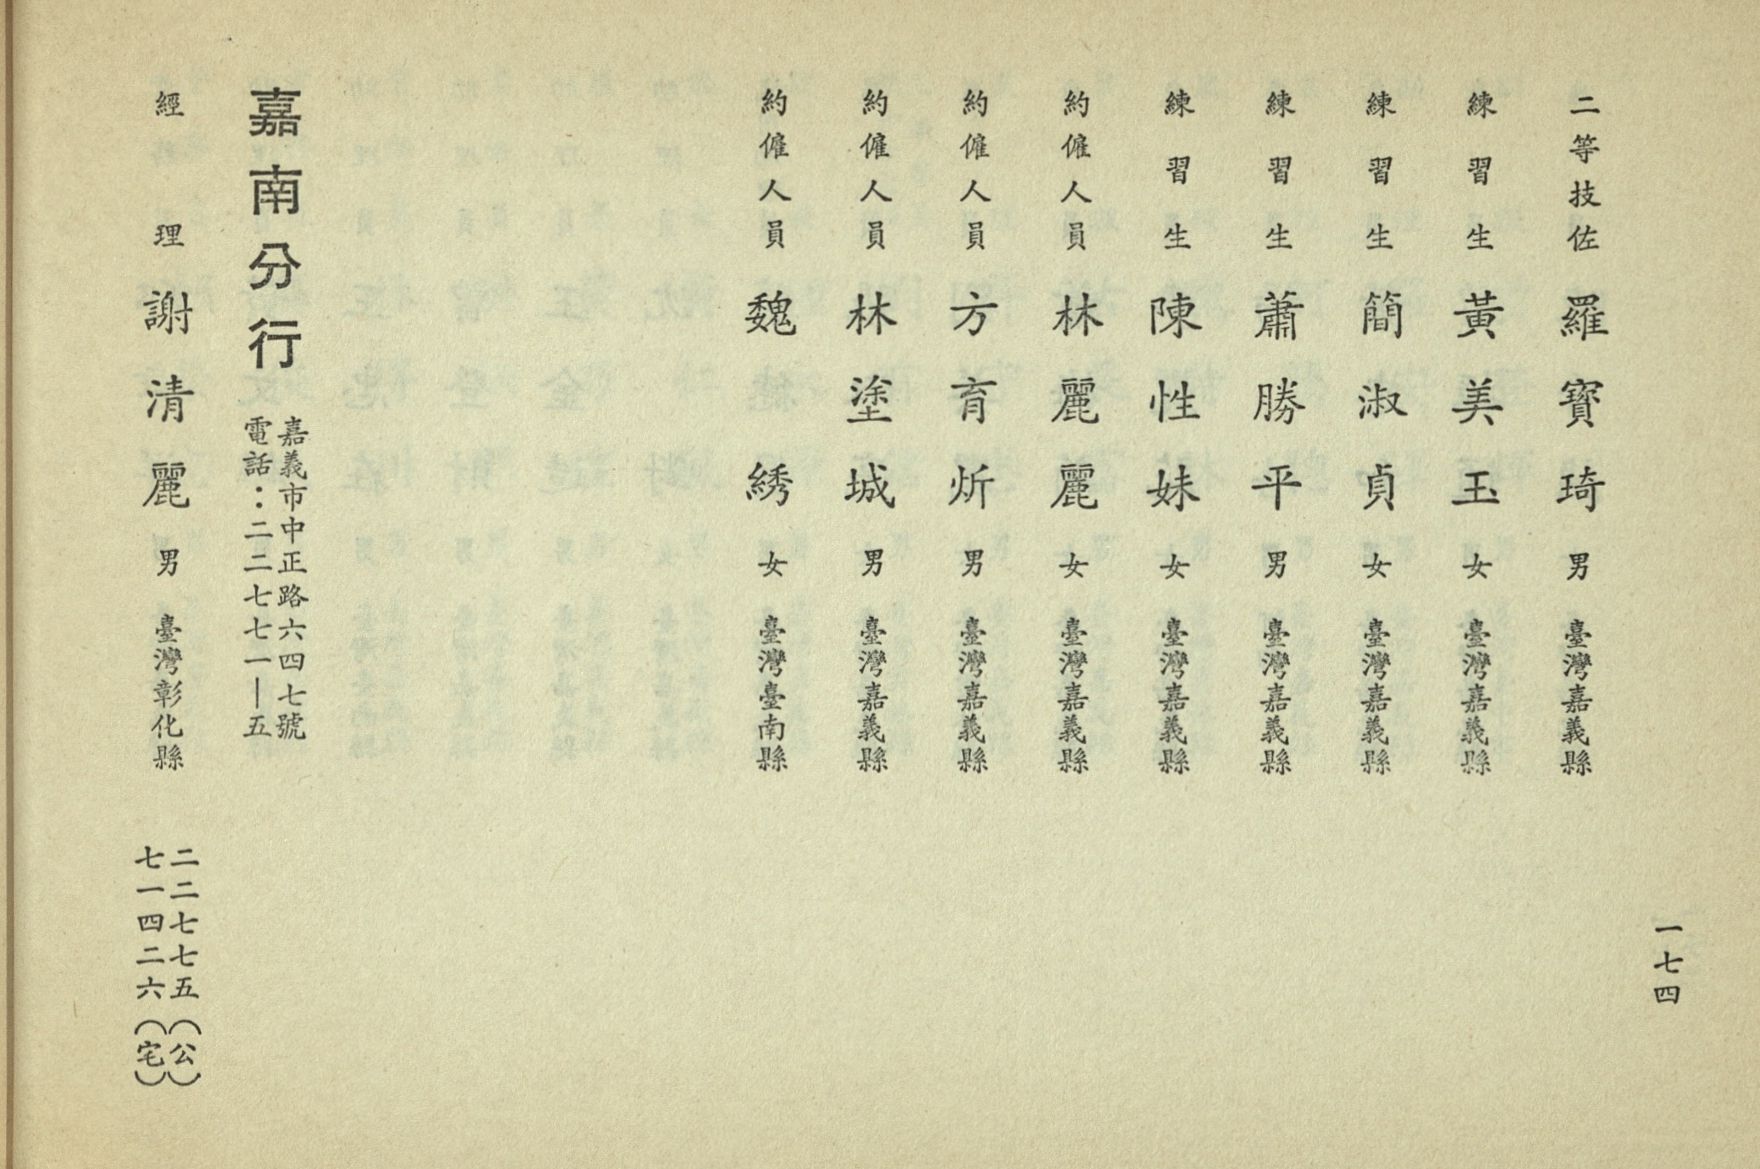 一七四
二等技佐 羅寶琦 男 臺灣嘉義縣
練習生 黃美玉 女 臺灣嘉義縣
練習生 簡淑貞 女 臺灣嘉義縣
練習生 蕭勝平 男 臺灣嘉義縣
練習生 陳性妹 女 臺灣嘉義縣
約僱人員 林麗麗 女 臺灣嘉義縣
約僱人員 方育炘 男 臺灣嘉義縣
約僱人員 林塗城 男 臺灣嘉義縣
約僱人員 魏綉 女 臺灣臺南縣
嘉南分行
嘉義市中正路六四七號
電話：二二七七一—五
經理 謝清麗 男 臺灣彰化縣
二二七七五（公）
七一四二六（宅）